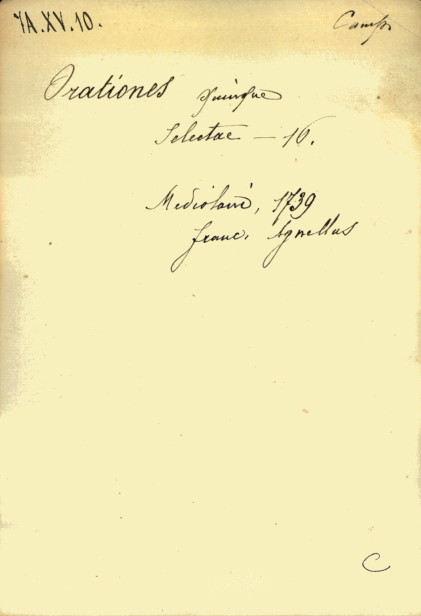 YA.XV.10.
Camp.
Orationes quinque
Selectae — 16.
Mediolani, 1739
franc. Agnellus
C